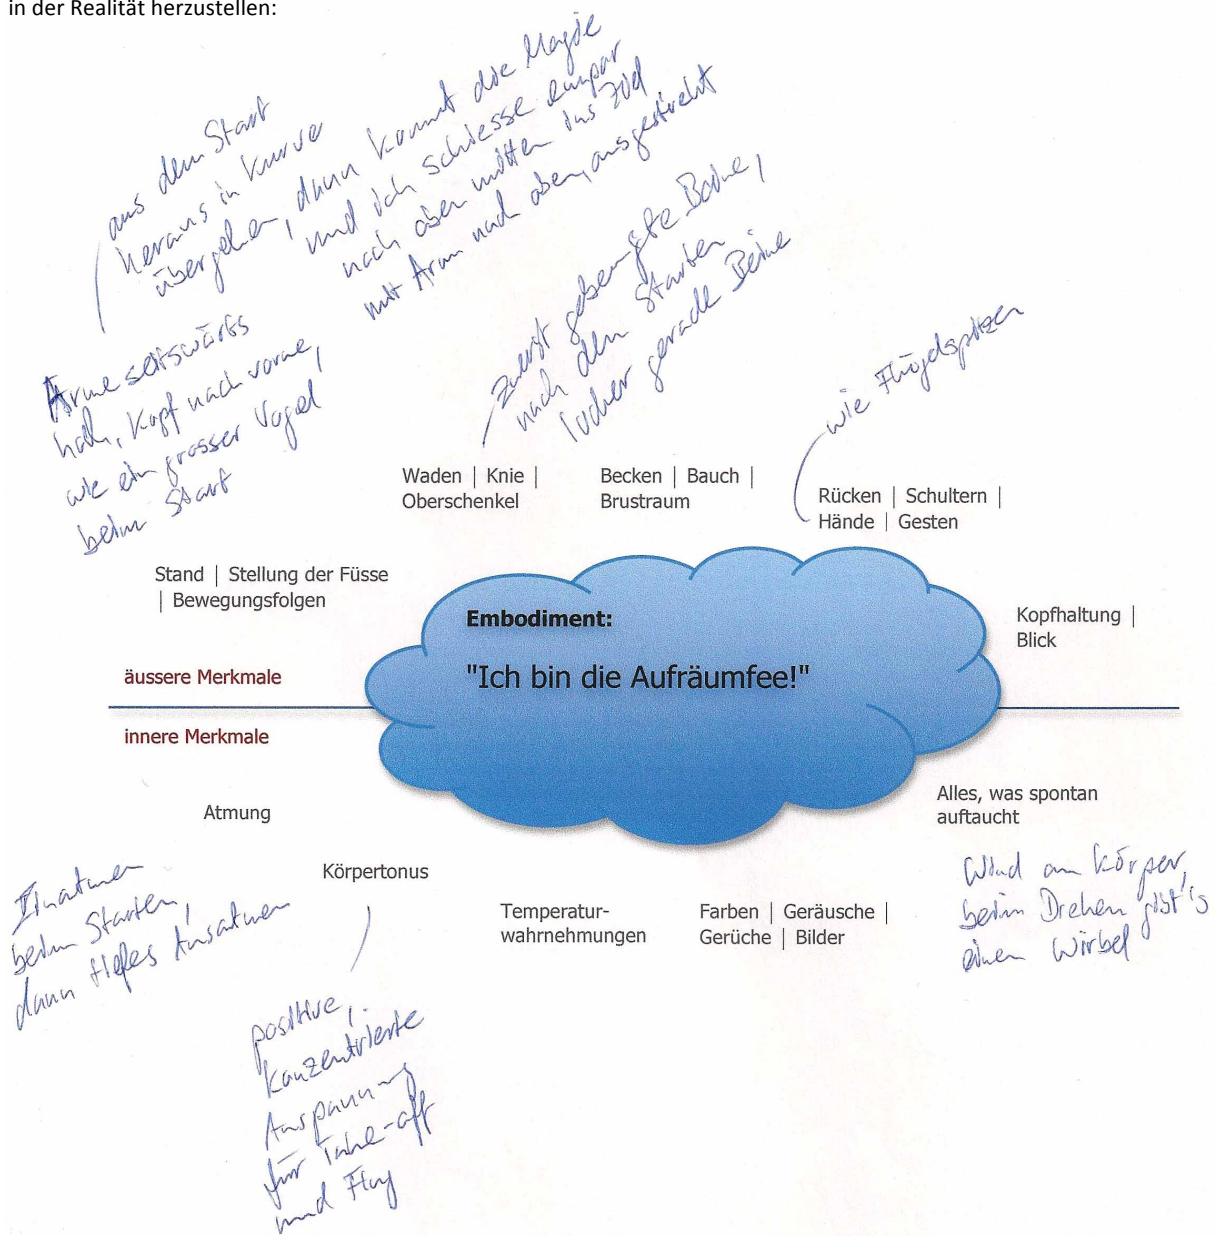 in der Realität herzustellen:
aus dem Start
heraus in Kurve
übergehen, dann kommt die Magie
und ich schiesse empor
nach oben mitten ins Ziel
mit Arm nach oben, ausgestreckt
Arme seitswärts
hoch, Kopf nach vorne,
wie ein grosser Vogel
beim Start
zuerst gebeugte Beine,
nach dem Starten
locker gerade Beine
wie Flügelspitzen
Waden | Knie |
Oberschenkel
Becken | Bauch |
Brustraum
Rücken | Schultern |
Hände | Gesten
Stand | Stellung der Füsse
| Bewegungsfolgen
Embodiment:
"Ich bin die Aufräumfee!"
Kopfhaltung |
Blick
äussere Merkmale
innere Merkmale
Atmung
Körpertonus
Temperatur-
wahrnehmungen
Farben | Geräusche |
Gerüche | Bilder
Alles, was spontan
auftaucht
Einatmen
beim Starten,
dann tiefes Ausatmen
positive,
konzentrierte
Anspannung
für Take-off
und Flug
Wind am Körper,
beim Drehen gibt's
einen Wirbel